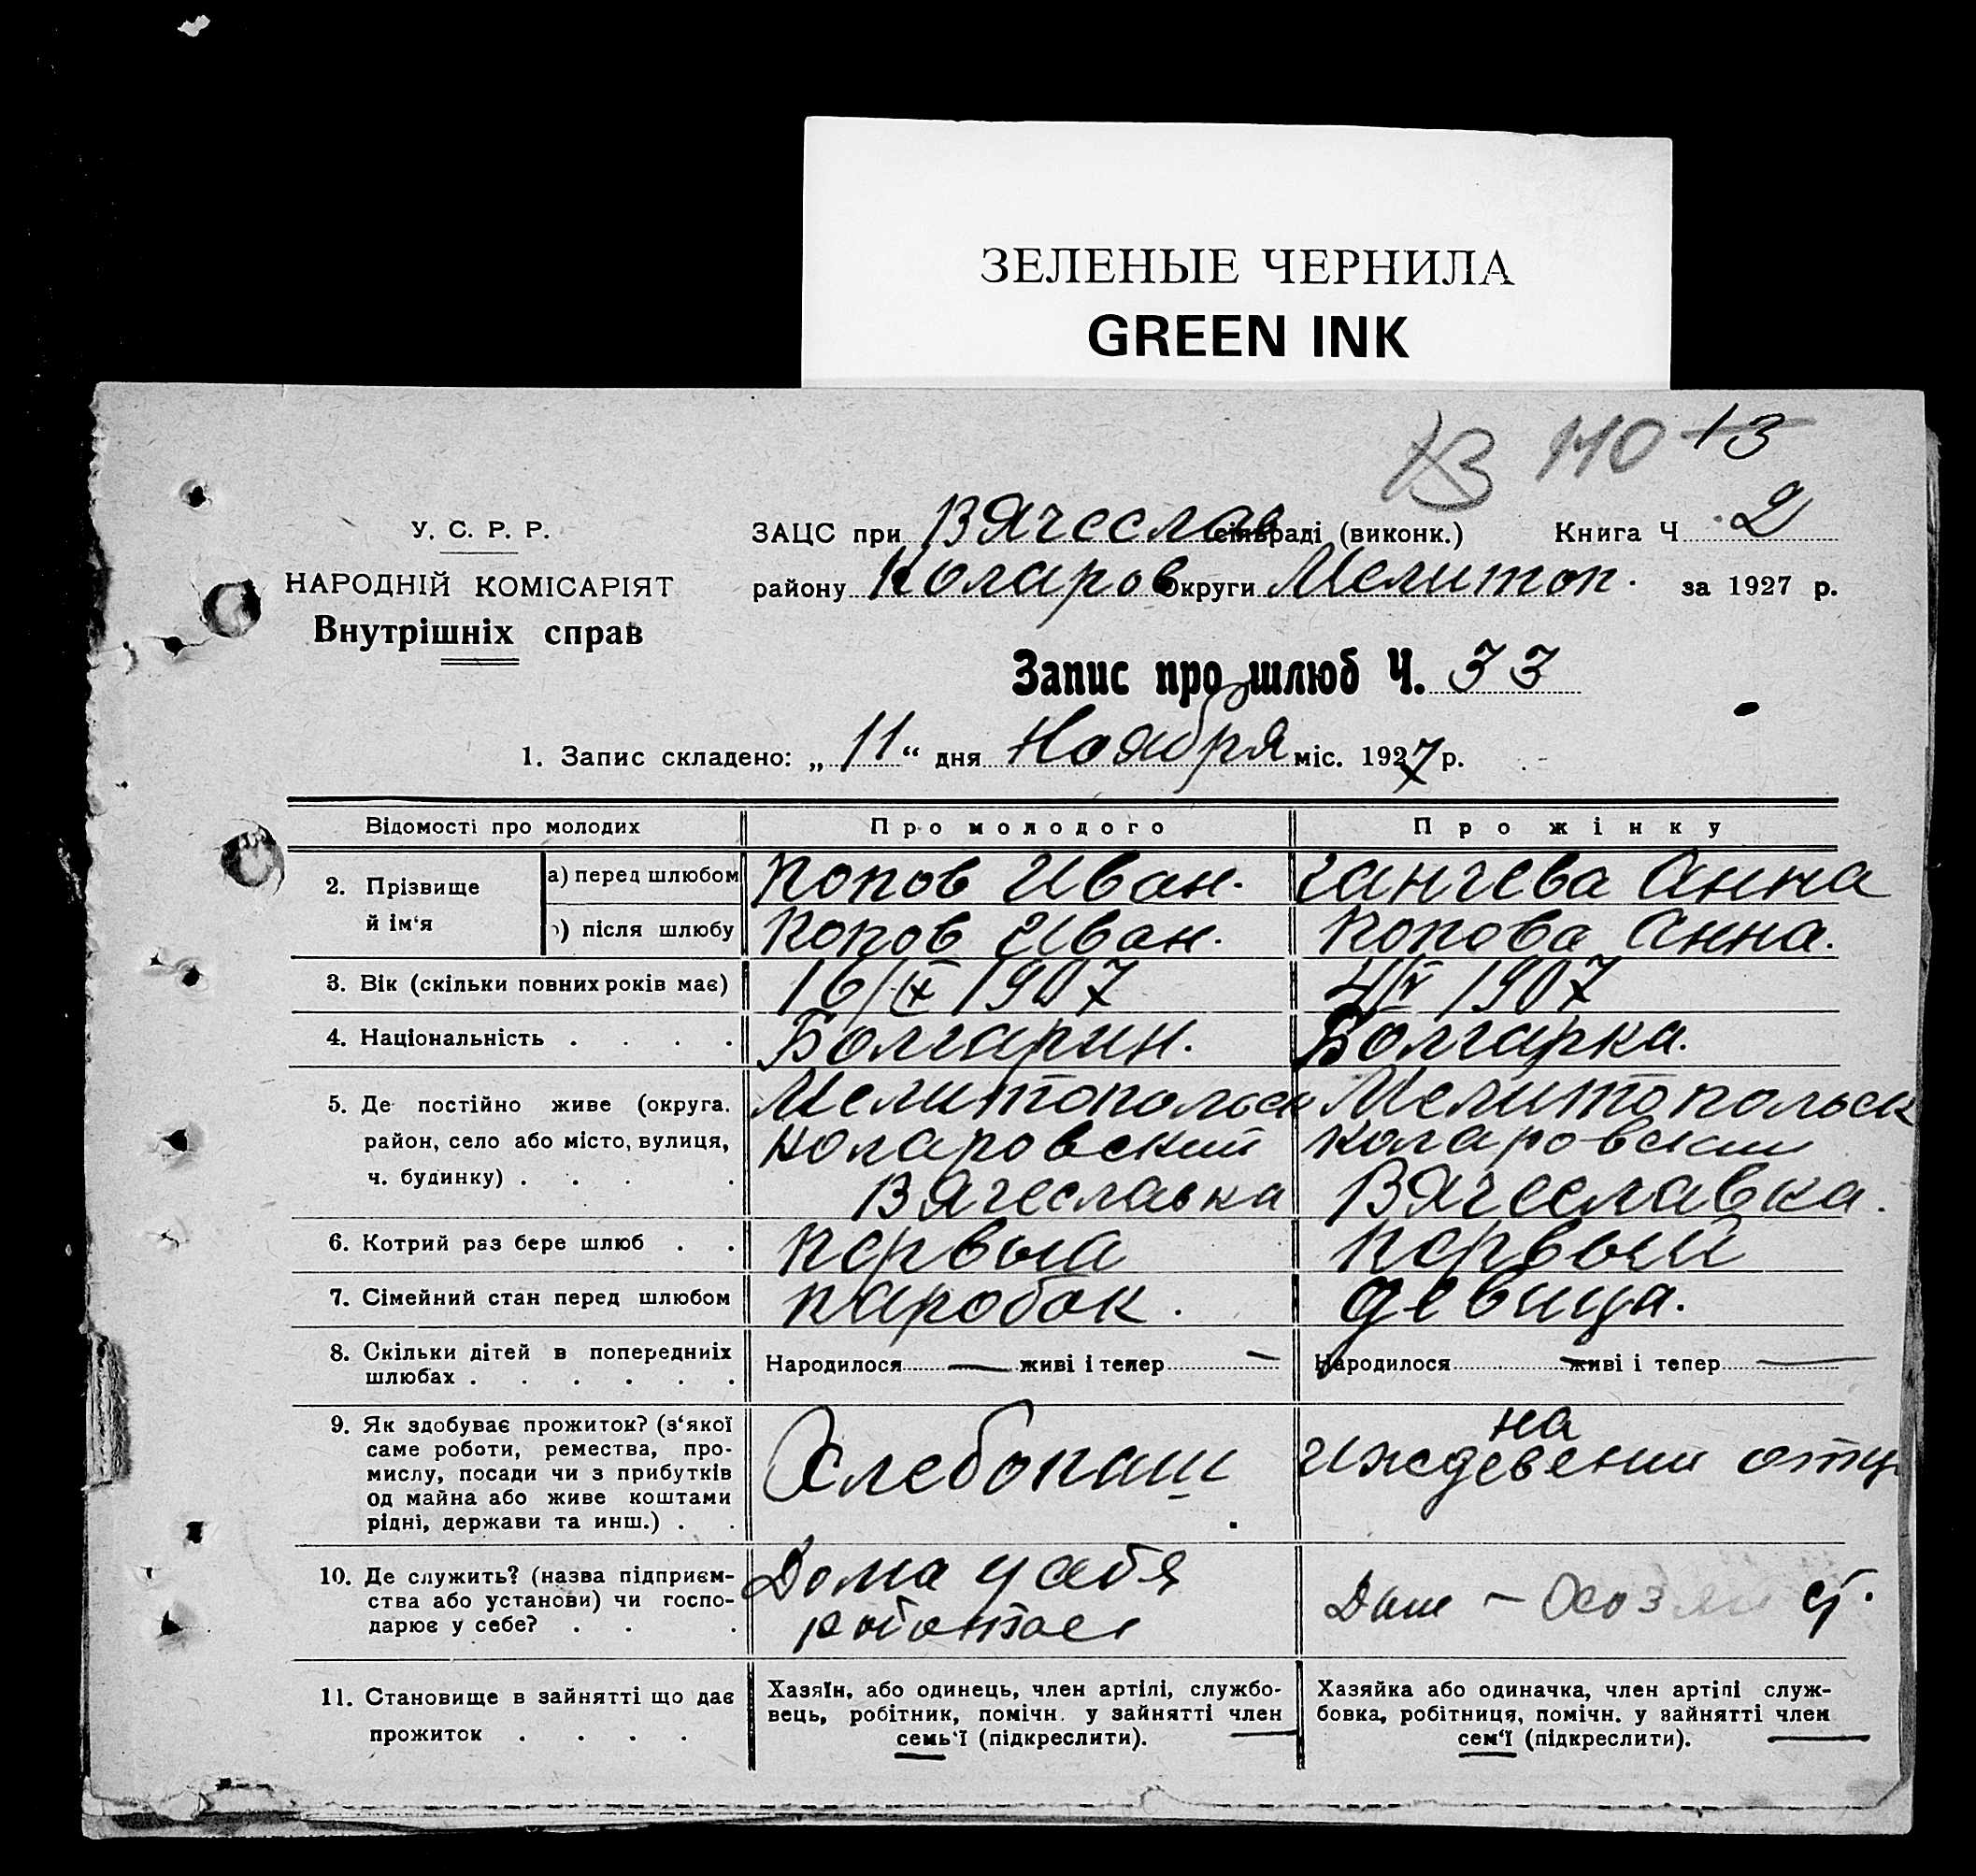 ЗЕЛЕНЫЕ ЧЕРНИЛА
GREEN INK
13 110 13
У. С. Р. Р.
НАРОДНІЙ КОМІСАРІЯТ
Внутрішніх справ
ЗАЦС при Вячеслав сільраді (виконк.) Книга Ч 2
району Коларов округи Мелитоп. за 1927 р.
Запис про шлюб Ч. 33
1. Запис складено: „ 11 “ дня Ноября міс. 1927 р.
Відомості про молодих Про молодого Про жінку
2. Прізвище й ім‘я
а) перед шлюбом Попов Иван. Ганчева Анна
б) після шлюбу Попов Иван. Попова Анна.
3. Вік (скільки повних років має) 16/IX 1907 4/IV 1907
4. Національність . . . . Болгарин. Болгарка.
5. Де постійно живе (округа. Мелитопольск Мелитопольск
район, село або місто, вулиця, Коларовский Коларовский
ч. будинку) . . . . Вячеславка Вячеславка.
6. Котрий раз бере шлюб . . первый первый
7. Сімейний стан перед шлюбом паробок. девица.
8. Скільки дітей в попередниіх Народилося — живі і тепер — Народилося — живі і тепер —
шлюбах . . . . . .
9. Як здобуває прожиток? (з‘якої на
саме роботи, ремества, про- Хлебопаш иждевении отц
мислу, посади чи з прибутків
од майна або живе коштами
рідні, держави та инш.) . .
10. Де служить? (назва підприєм- Дома у себя Дом –
ства або установи) чи госпо- работает
дарює у себе? . . .
11. Становище в зайнятті що дає Хазяїн, або одинець, член артілі, службо- Хазяйка або одиначка, член артілі служ-
прожиток . . . . вець, робітник, помічн. у зайнятті член бовка, робітниця, помічн. у зайнятті член
семь‘ї (підкреслити). сем‘ї (підкреслити).